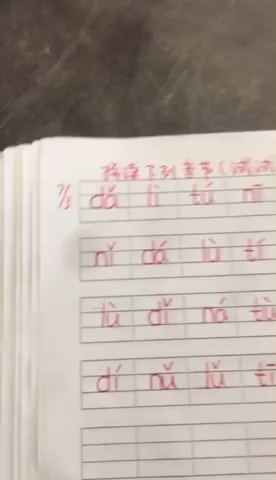 拼读下列音节(
7/3
dǎ lì tú nī
nǐ dá lù tí
lù dǐ ná tù
dí nǔ lǚ tī